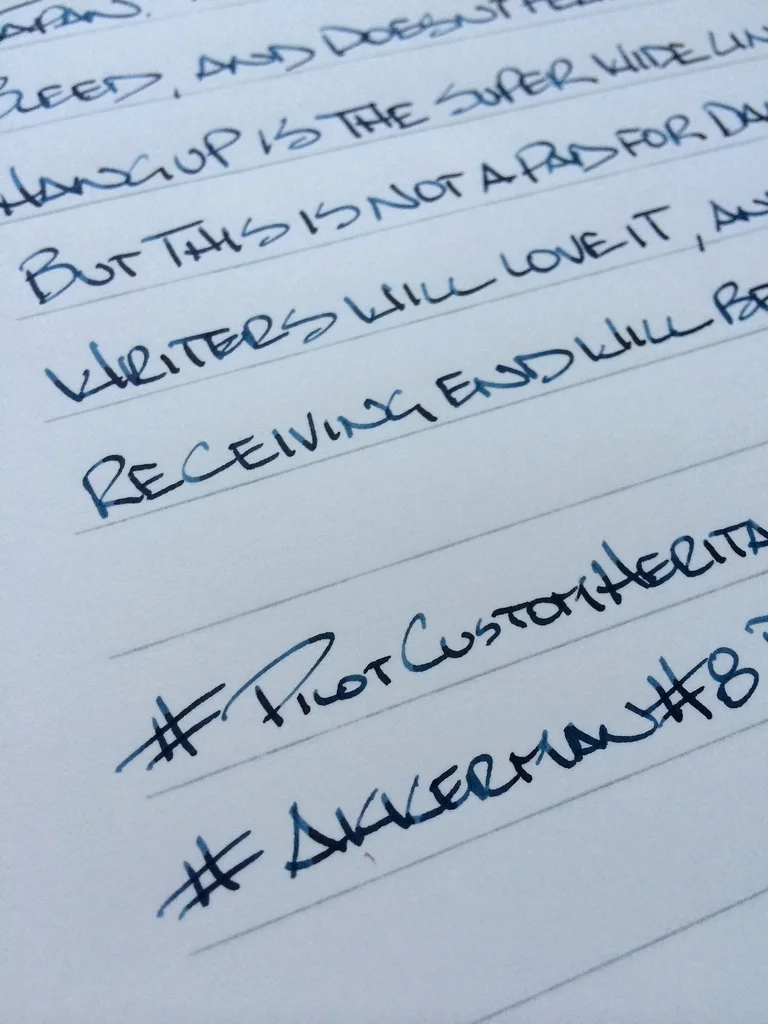 JAPAN.
BLEED, AND DOESN'T
HANGUP IS THE SUPER WIDE
BUT THIS IS NOT A PAD FOR
WRITERS WILL LOVE IT,
RECEIVING END WILL BE
#PILOTCUSTOMHERITA
#AKKERMAN#8